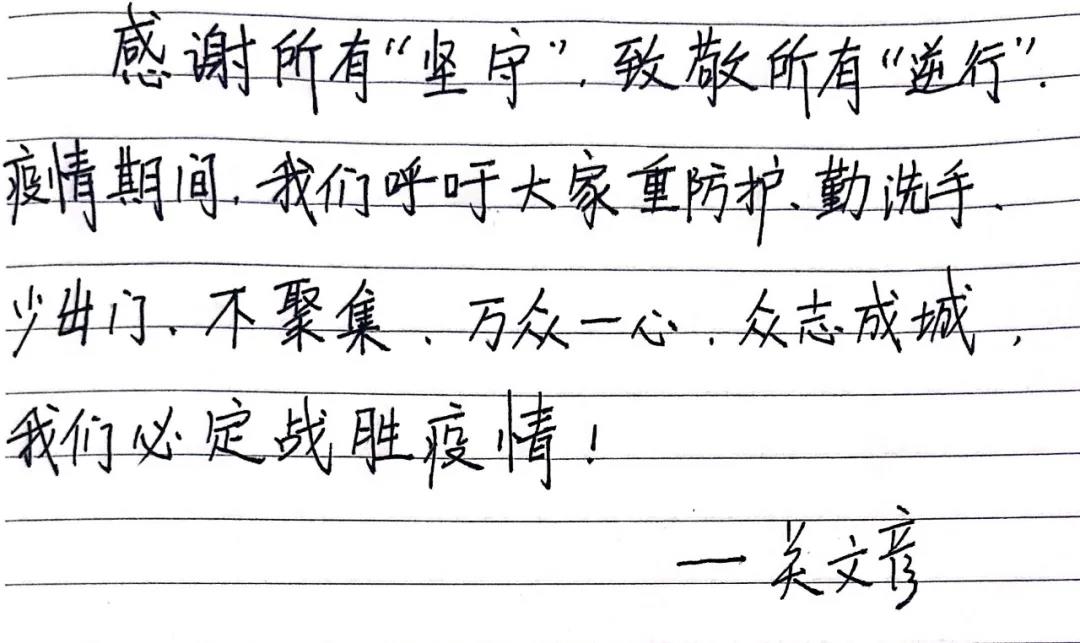 感谢所有“坚守”，致敬所有“逆行”．
疫情期间，我们呼吁大家重防护、勤洗手、
少出门、不聚集、万众一心，众志成城，
我们必定战胜疫情！
— 关文彦